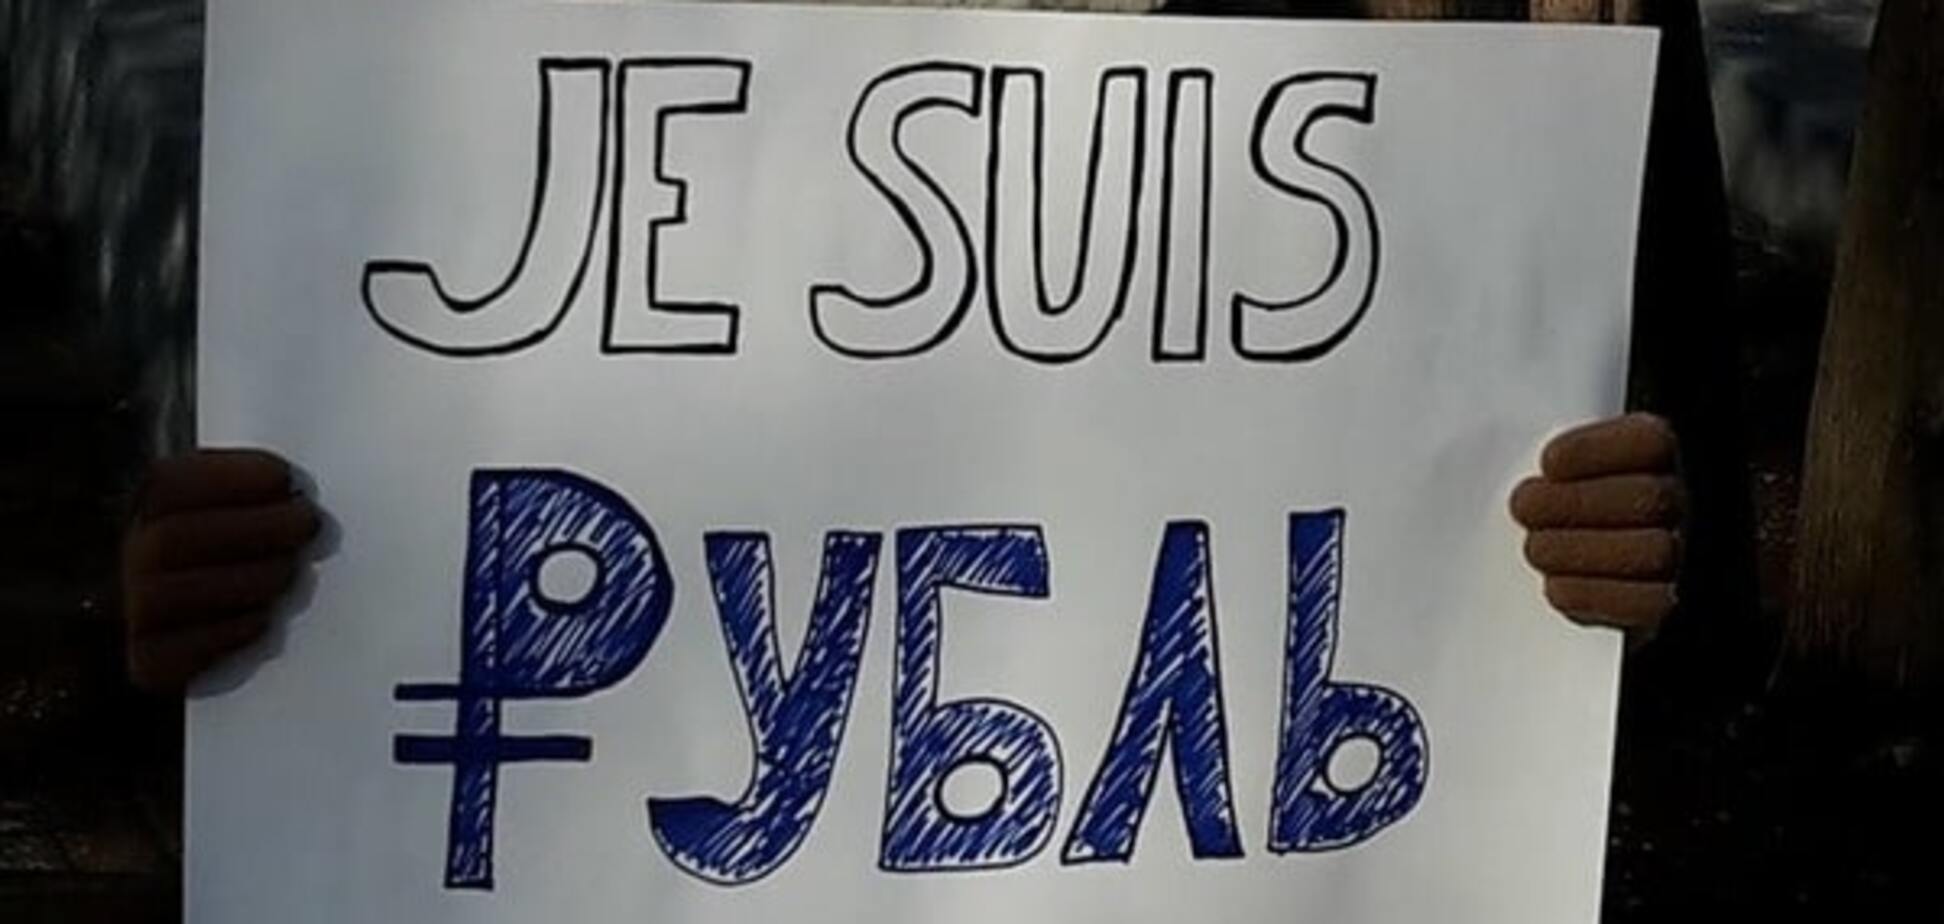 JE SUIS
₽УБЛЬ